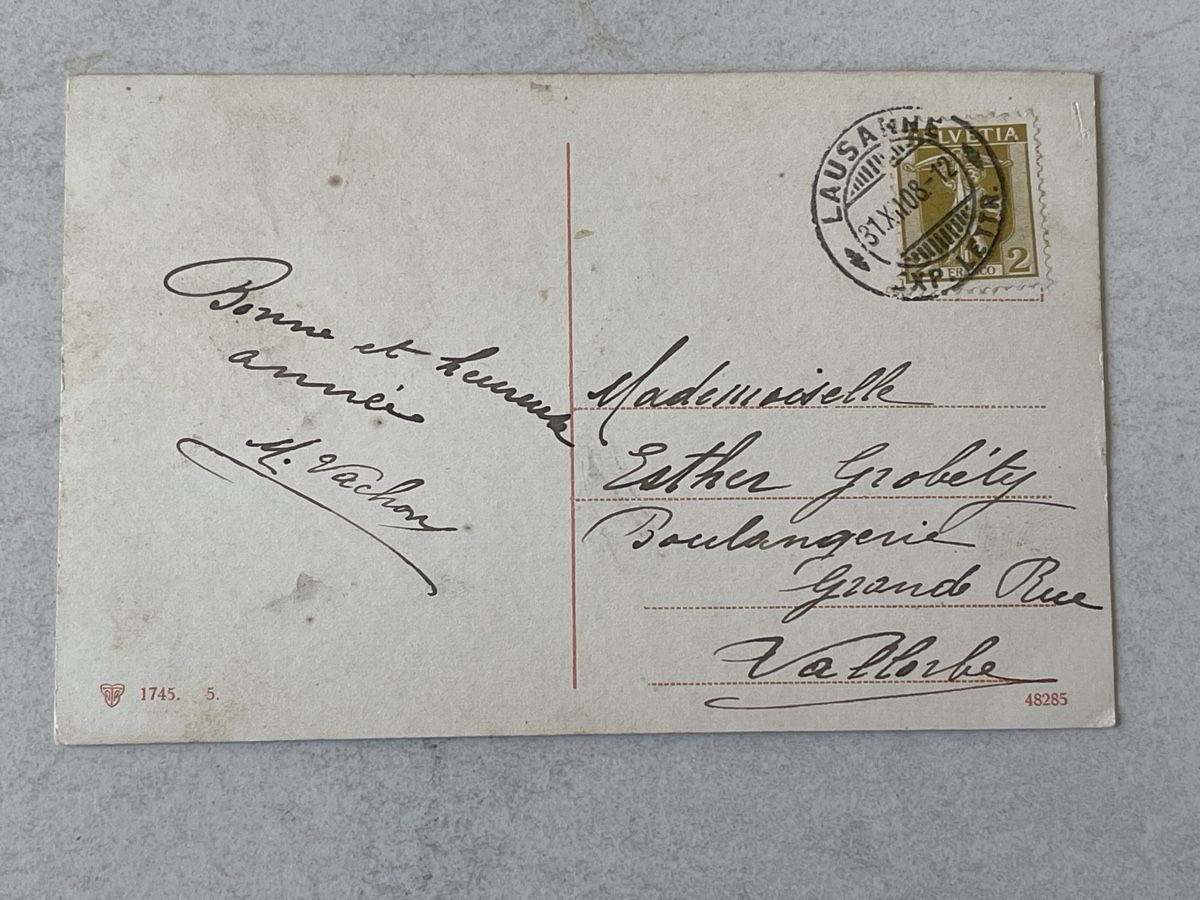 Bonne et heureuse
année
M. Vachon
1745. 5.
LAUSANNE
31.XII.08-12
EXP. LETTR.
HELVETIA
FRANCO
2
Mademoiselle
Esther Grobéty
Boulangerie
Grande Rue
Vallorbe
48285